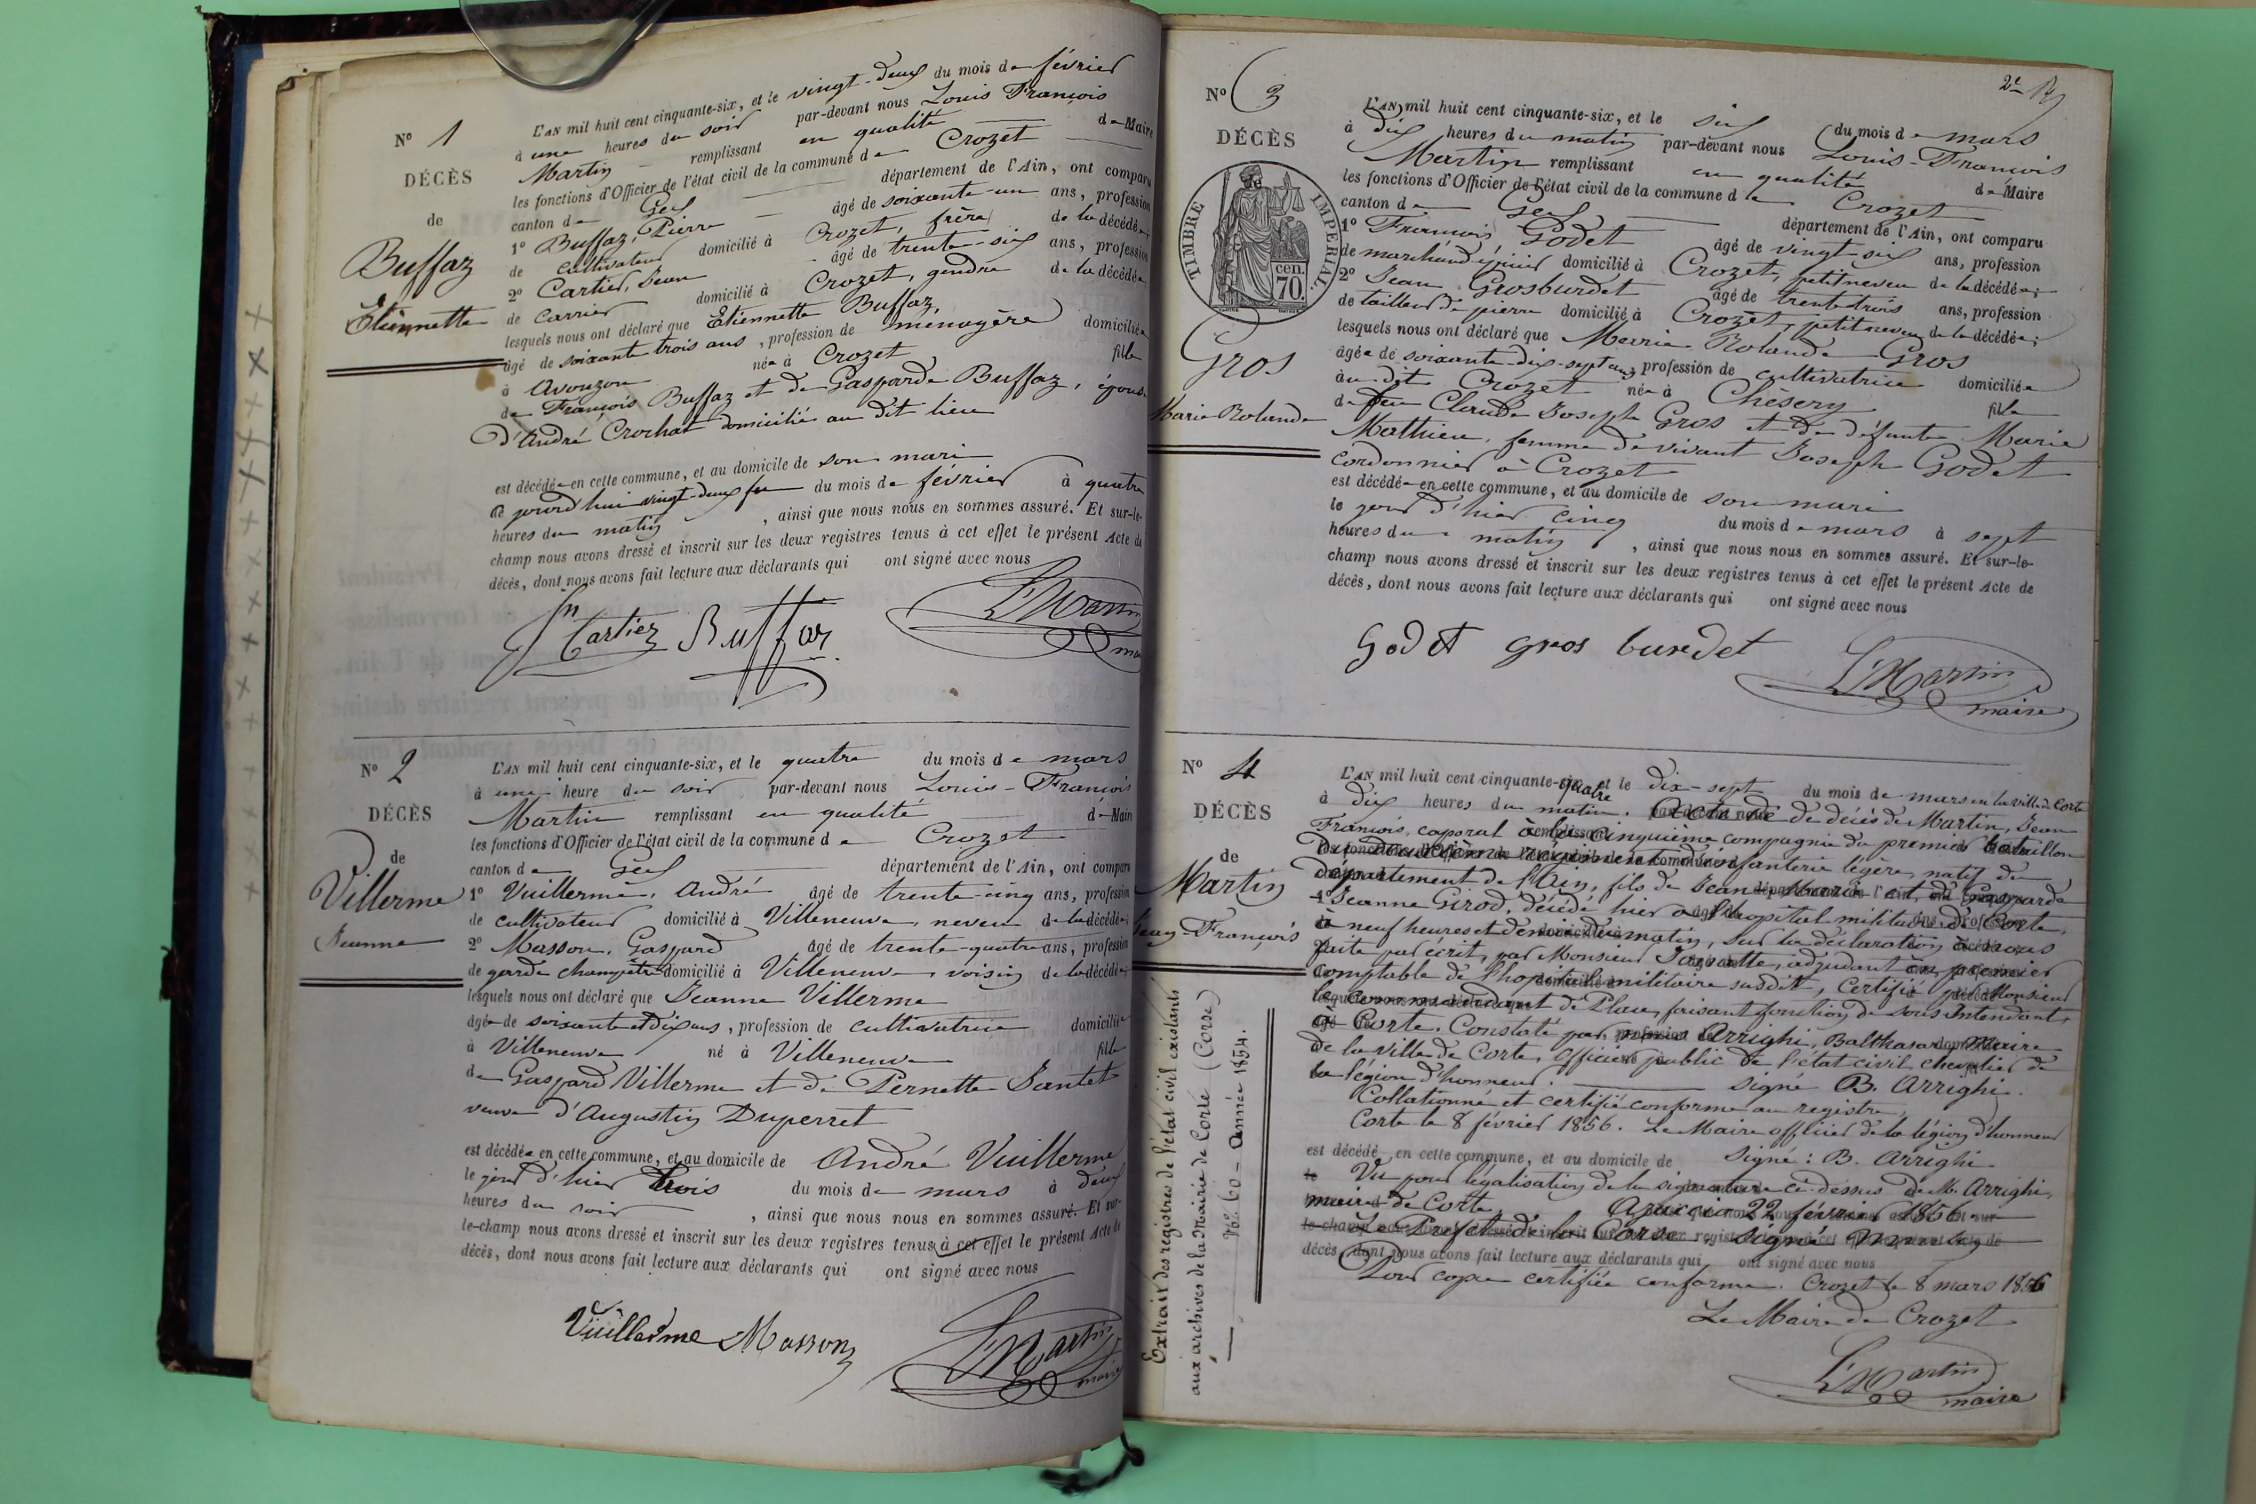 N° 1
DÉCÈS
de
Buffaz
Etiennette
L'AN mil huit cent cinquante-six, et le vingt-deux du mois de février
à une heures du soir par-devant nous Louis François
Martin remplissant en qualité de Maire
les fonctions d'Officier de l'état civil de la commune de Crozet
canton de Gex département de l'Ain, ont comparu
1° Buffaz, Pierre âgé de soixante-un ans, profession
de cultivateur domicilié à Crozet, frère de la décédée;
2° Cartier, Jean âgé de trente-six ans, profession
de carrier domicilié à Crozet, gendre de la décédée
lesquels nous ont déclaré que Etiennette Buffaz,
âgé de soixante trois ans, profession de ménagère domiciliée
à Avouzon née à Crozet fille
de François Buffaz et de Gasparde Buffaz, épouse
d'André Crochat domicilié au dit lieu
est décédée en cette commune, et au domicile de son mari
ce jourd'hui vingt-deux du mois de février à quatre
heures du matin, ainsi que nous nous en sommes assuré. Et sur-le-
champ nous avons dressé et inscrit sur les deux registres tenus à cet effet le présent Acte de
décès, dont nous avons fait lecture aux déclarants qui ont signé avec nous
Jn Cartier Buffaz L Martin
N° 2
DÉCÈS
de
Villerme
Jeanne
L'AN mil huit cent cinquante-six, et le quatre du mois de mars
à une heure du soir par-devant nous Louis-François
Martin remplissant en qualité de Maire
les fonctions d'Officier de l'état civil de la commune de Crozet
canton de Gex département de l'Ain, ont comparu
1° Vuillerme, André âgé de trente-cinq ans, profession
de cultivateur domicilié à Villeneuve, neveu de la décédée;
2° Masson, Gaspard âgé de trente-quatre ans, profession
de garde champêtre domicilié à Villeneuve, voisin de la décédée;
lesquels nous ont déclaré que Jeanne Villerme
âgée de soixante et dix ans, profession de cultivatrice domiciliée
à Villeneuve né à Villeneuve fille
de Gaspard Villerme et de Pernette Jantet
veuve d'Augustin Duperret
est décédée en cette commune, et au domicile de André Vuillerme
le jour d'hier trois du mois de mars à deux
heures du soir, ainsi que nous nous en sommes assuré. Et sur-
le-champ nous avons dressé et inscrit sur les deux registres tenus à cet effet le présent Acte de
décès, dont nous avons fait lecture aux déclarants qui ont signé avec nous
Vuillerme Masson L Martin
maire
2e
N° 3
DÉCÈS
TIMBRE IMPERIAL
70 cen.
Gros
Marie Rolande
L'AN mil huit cent cinquante-six, et le six du mois de mars
à dix heures du matin par-devant nous Louis-François
Martin remplissant en qualité de Maire
les fonctions d'Officier de l'état civil de la commune de Crozet
canton de Gex département de l'Ain, ont comparu
1° François Godet âgé de vingt-six ans, profession
de marchand épicier domicilié à Crozet, petit neveu de la décédée;
2° Jean Grosburdet âgé de trente trois ans, profession
de tailleur de pierre domicilié à Crozet, petit neveu de la décédée;
lesquels nous ont déclaré que Marie Rolande Gros
âgée de soixante-dix-sept ans, profession de cultivatrice domiciliée
au dit Crozet née à Chésery fille
de feu Claude Joseph Gros et de défunte Marie
Mathieu, femme de vivant Joseph Godet
cordonnier à Crozet
est décédée en cette commune, et au domicile de son mari
le jour d'hier cinq du mois de mars à sept
heures du matin, ainsi que nous nous en sommes assuré. Et sur-le-
champ nous avons dressé et inscrit sur les deux registres tenus à cet effet le présent Acte de
décès, dont nous avons fait lecture aux déclarants qui ont signé avec nous
Godet gros burdet L Martin
maire
N° 4
DÉCÈS
de
Martin
Jean-François
Extrait des registres de l'état civil existants
aux archives de la Mairie de Corte (Corse)
N° 60 - Année 1854.
L'AN mil huit cent cinquante-quatre et le dix-sept du mois de mars en la ville de Corte
à dix heures du matin. Acte de décès de Martin, Jean
François, caporal à la cinquième compagnie du premier bataillon
du régiment d'infanterie légère, natif de
département de l'Ain, fils de Jean Marie et de Gasparde
Jeanne Girod, décédé hier à l'hôpital militaire de Corte,
à neuf heures et demie du matin, sur la déclaration à nous
faite par écrit, par Monsieur adjudant en premier
comptable de l'hopital militaire susdit, certifié par Monsieur
le commandant de Place, faisant fonction de sous Intendant
à Corte. Constaté par Arrighi, Balthasard Maire
de la ville de Corte, Officier public de l'état civil chevalier de
la légion d'honneur. signé B. Arrighi.
Collationné et certifié conforme au registre,
Corte le 8 février 1856. Le Maire officier de la légion d'honneur
est décédé en cette commune, et au domicile de signé: B. Arrighi.
Vu pour légalisation de la signature ci-dessus de M. Arrighi,
maire de Corte. Ajaccio 22 février 1856.
Le Préfet de la Corse, signé
décès, dont nous avons fait lecture aux déclarants qui ont signé avec nous
Pour copie certifiée conforme. Crozet le 8 mars 1856
Le Maire de Crozet
L Martin
maire